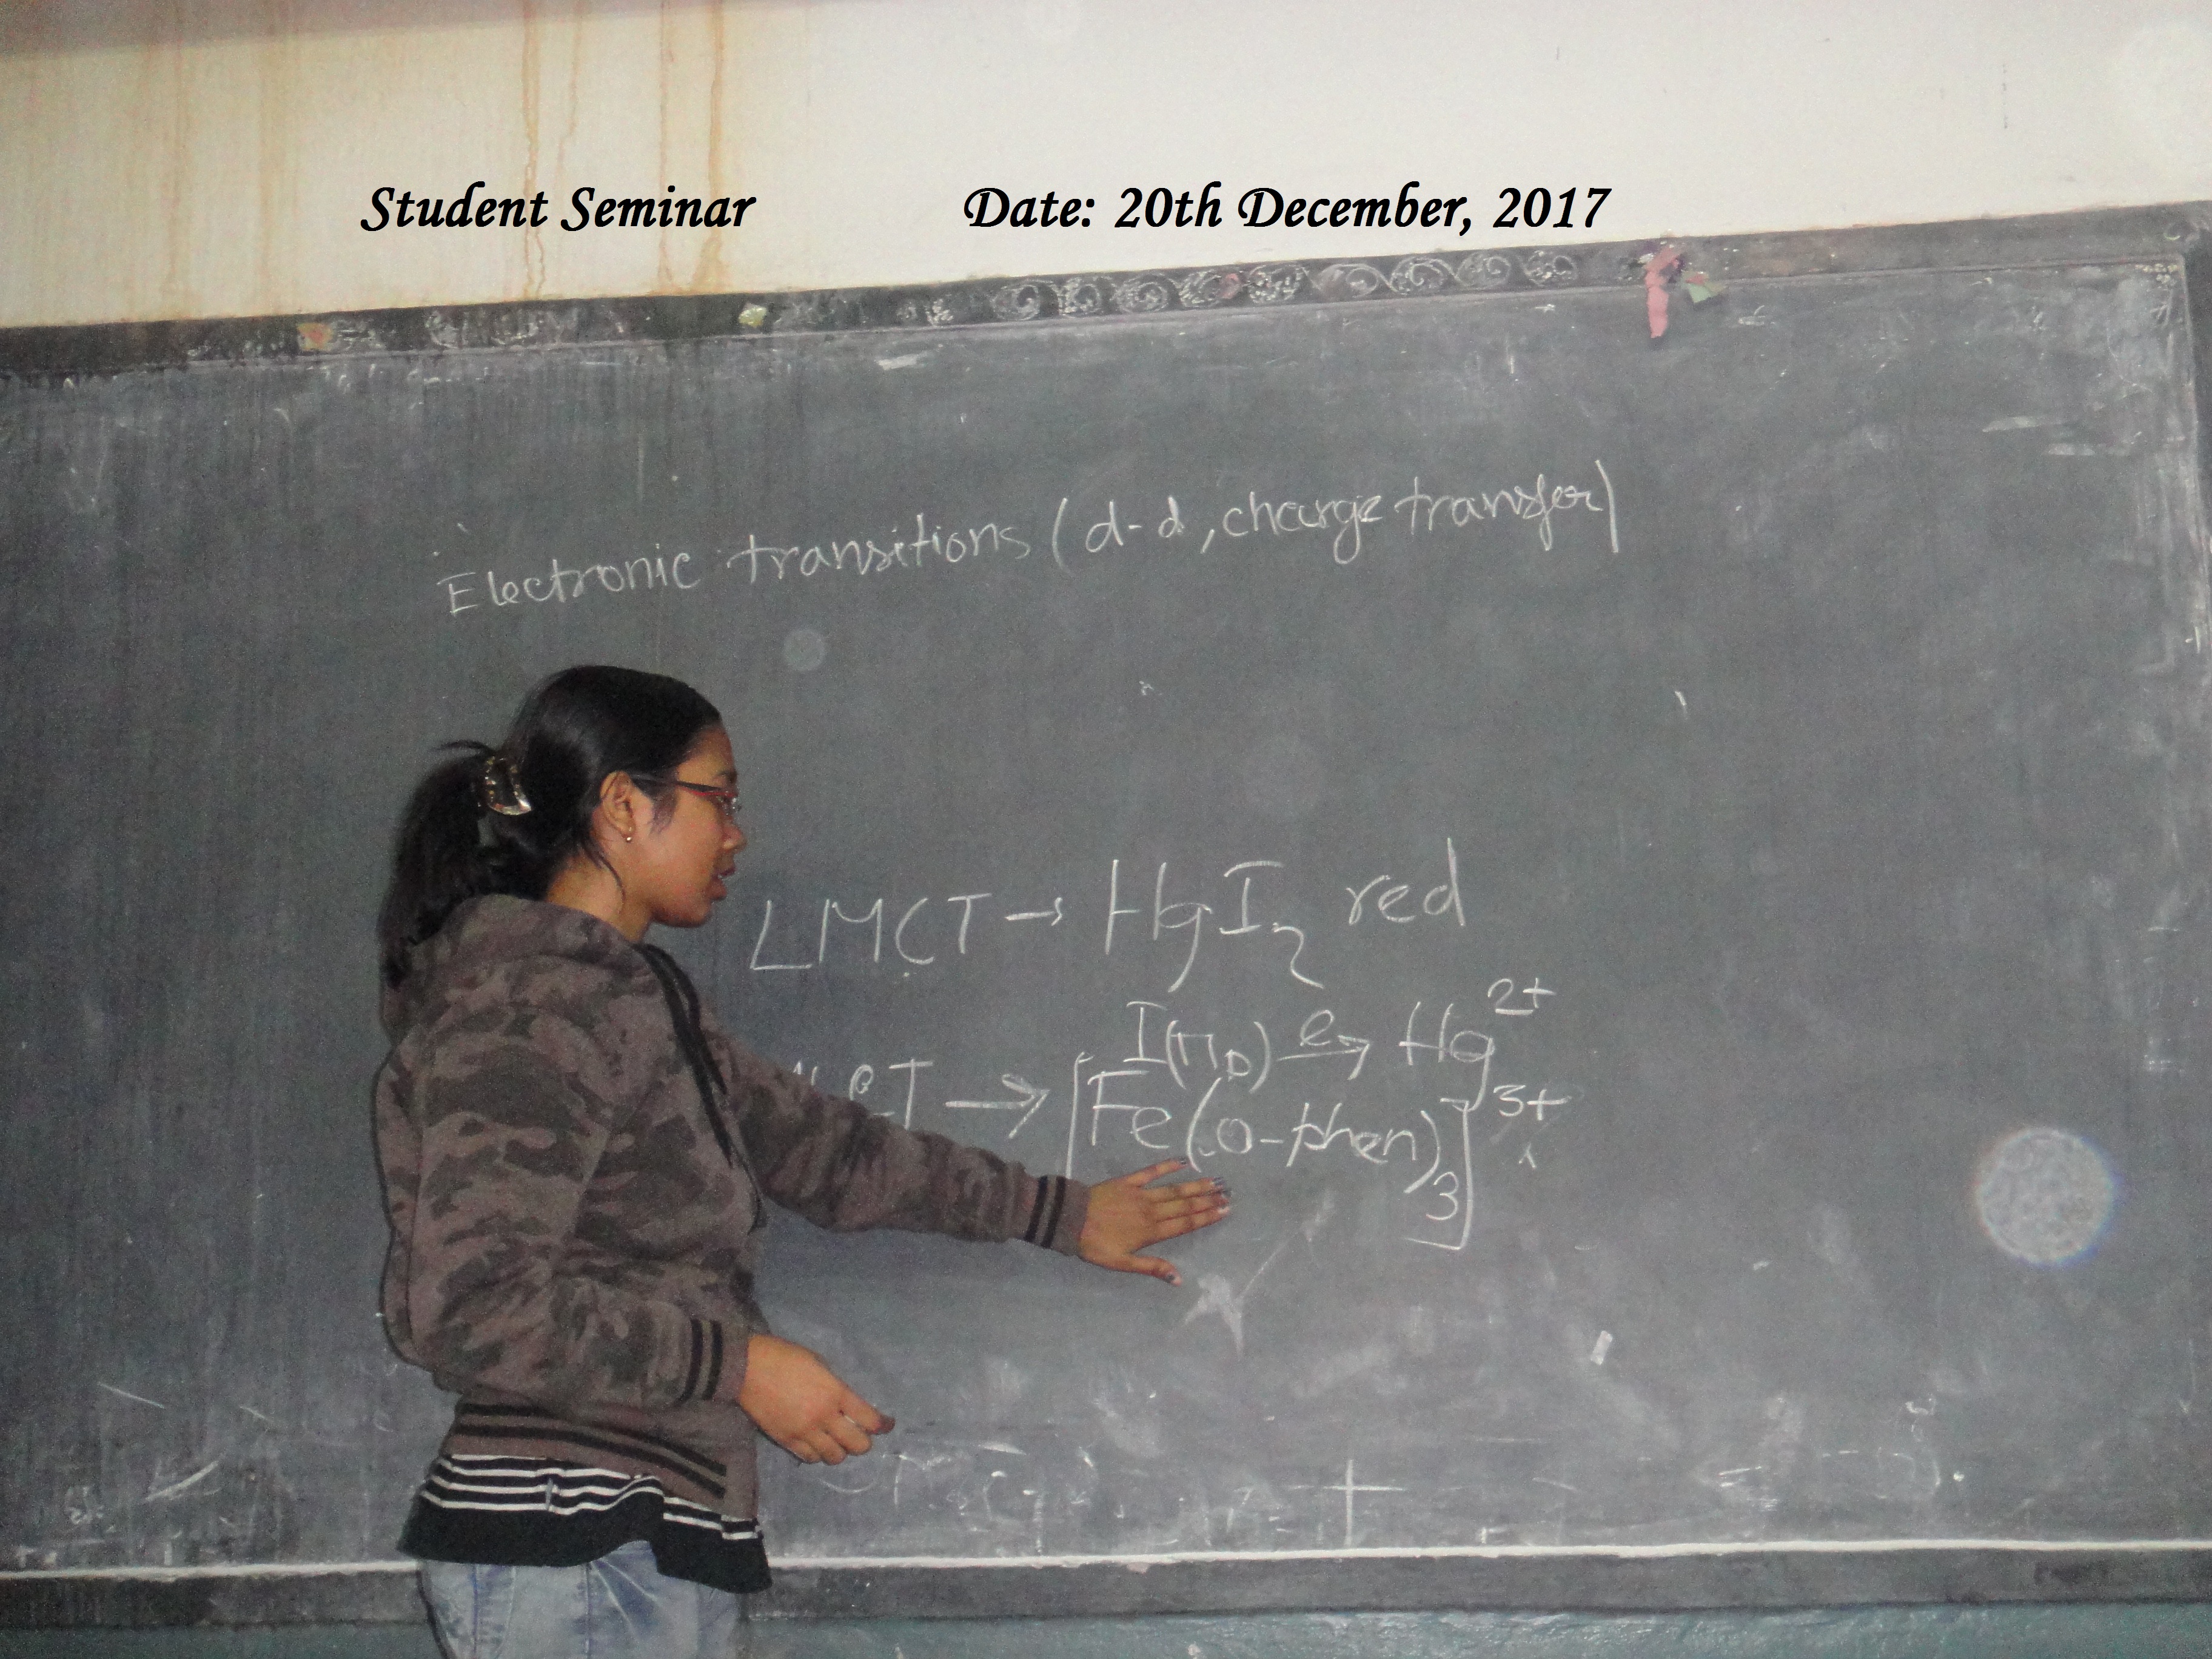 Student Seminar Date: 20th December, 2017
Electronic transitions (d-d, charge transfer)
LMCT → HgI₂ red
I(π_p) e→ Hg²⁺
CT → [Fe(o-phen)₃]³⁺